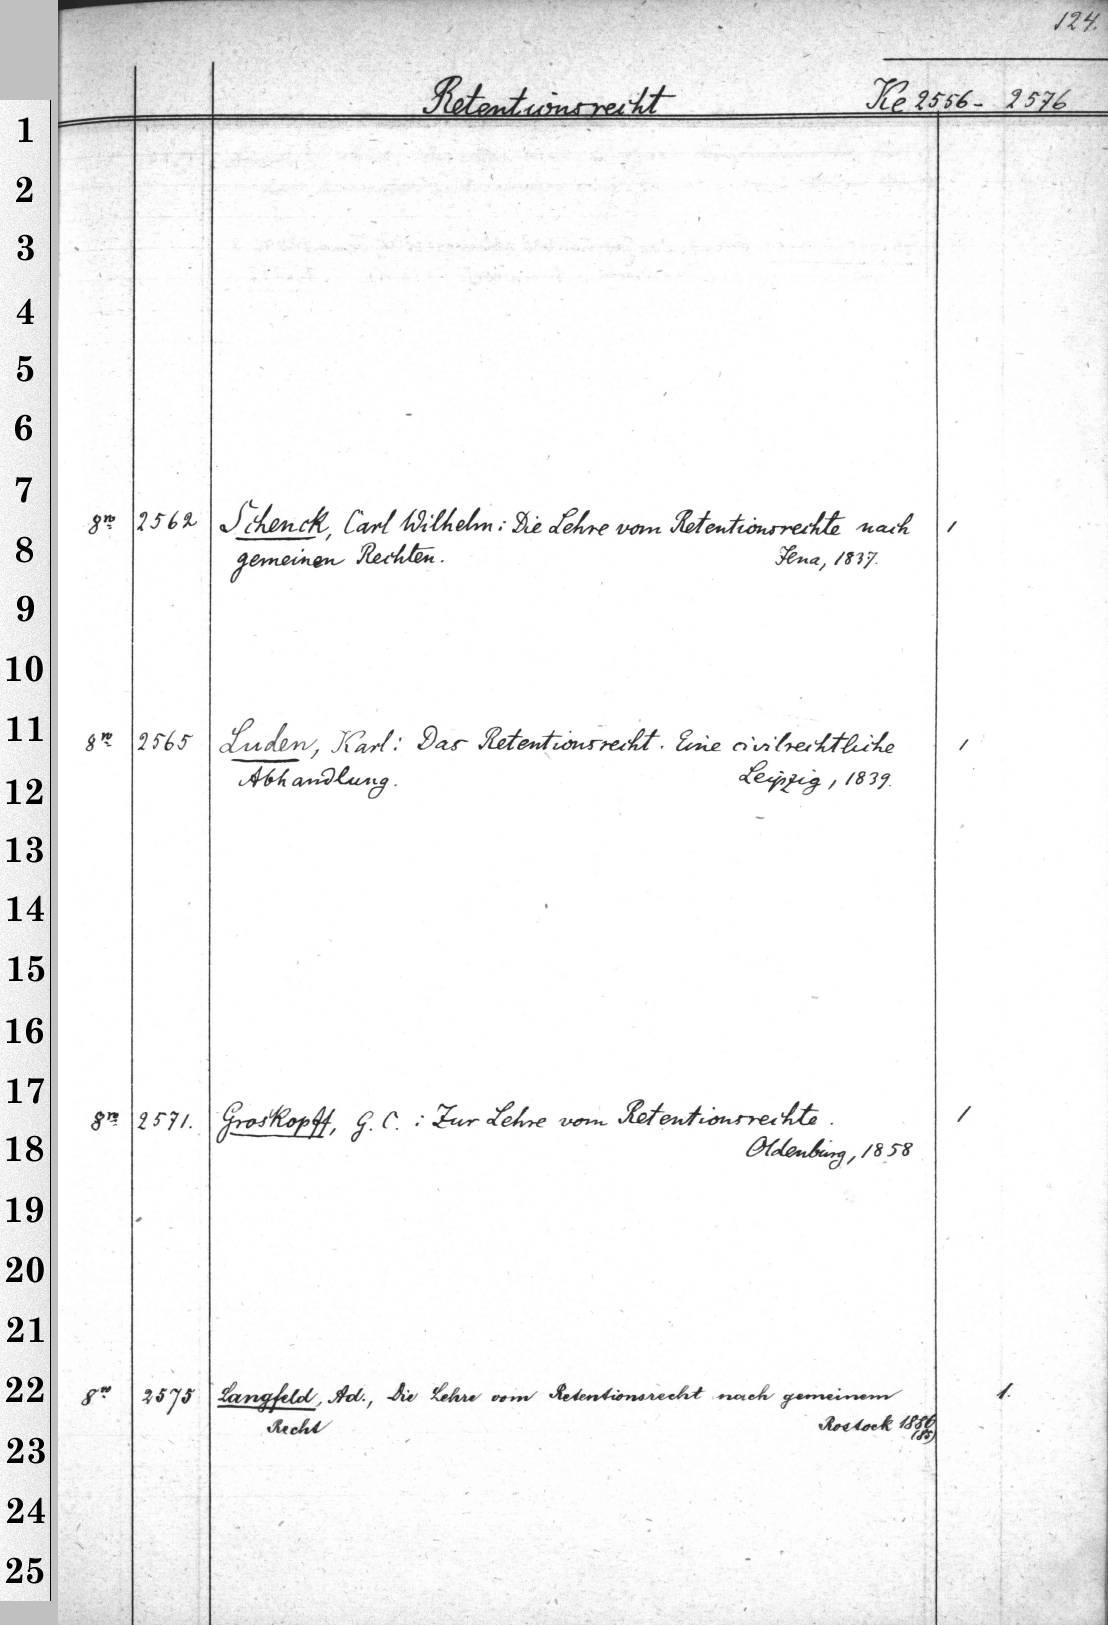 124.
Retentionsrecht Ke 2556 - 2576
1
2
3
4
5
6
7
8no 2562 Schenck, Carl Wilhelm: Die Lehre vom Retentionsrechte nach 1
8
gemeinen Rechten. Jena, 1837.
9
10
11
8no 2565 Luden, Karl: Das Retentionsrecht. Eine civilrechtliche 1
12
Abhandlung. Leipzig, 1839.
13
14
15
16
17
8no 2571. Groskopff, G. C.: Zur Lehre vom Retentionsrechte. 1
18
Oldenburg, 1858
19
20
21
22
8no 2575 Langfeld, Ad., Die Lehre vom Retentionsrecht nach gemeinem 1.
Recht Rostock 1886
(85)
23
24
25